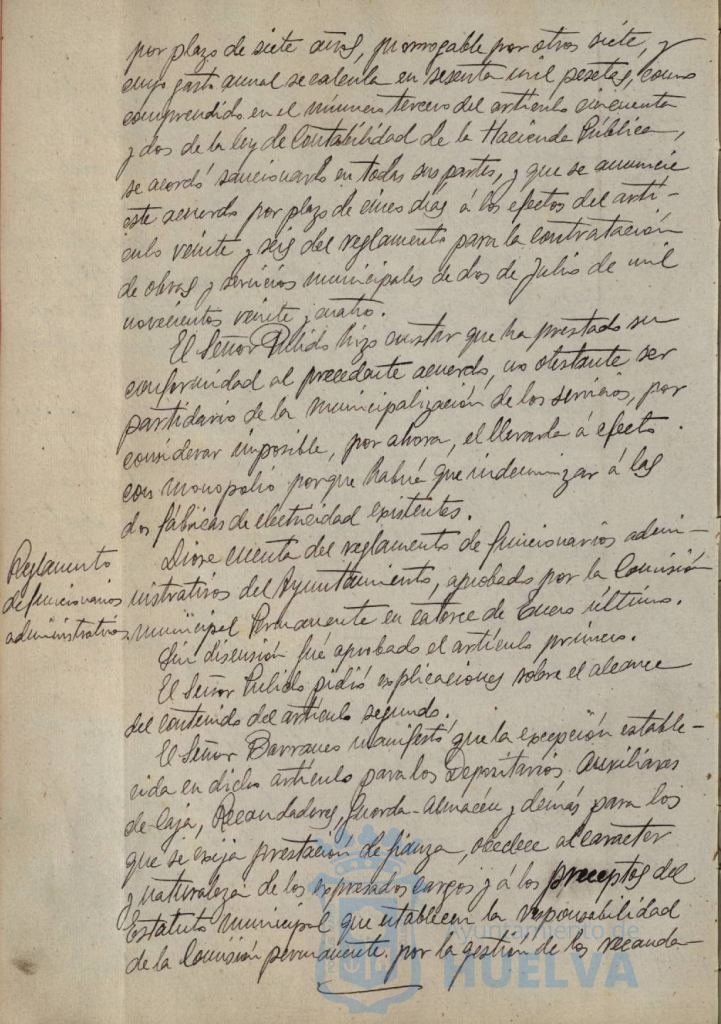 por plazo de siete años, prorrogable por otros siete, y
cuyo gasto anual se calcula en sesenta mil pesetas, como
comprendido en el número tercero del artículo cincuenta
y dos de la ley de Contabilidad de la Hacienda Pública,
se acordó sancionarlo en todas sus partes, y que se anuncie
este acuerdo por plazo de cinco días á los efectos del artí-
culo veinte y seis del reglamento para la contratación
de obras y servicios municipales de dos de Julio de mil
novecientos veinte y cuatro.
El Señor Pulido hizo constar que ha prestado su
conformidad al precedente acuerdo, no obstante ser
partidario de la municipalización de los servicios, por
considerar imposible, por ahora, el llevarla á efecto
con monopolio porque habría que indemnizar á las
dos fábricas de electricidad existentes.
Reglamento
de funcionarios
administrativos.
Dióse cuenta del reglamento de funcionarios admi-
nistrativos del Ayuntamiento, aprobado por la Comisión
municipal Permanente en catorce de Enero último.
Sin discusión fué aprobado el artículo primero.
El Señor Pulido pidió explicaciones sobre el alcance
del contenido del artículo segundo.
El Señor Barranco manifestó que la excepción estable-
cida en dicho artículo para los Depositarios Auxiliares
de Caja, Recaudadores, Guarda-Almacén y demás para los
que se exija prestación de fianza, obedece al carácter
y naturaleza de los expresados cargos y á los preceptos del
Estatuto municipal que establecen la responsabilidad
de la Comisión permanente por la gestión de los recauda-
Ayuntamiento de
HUELVA